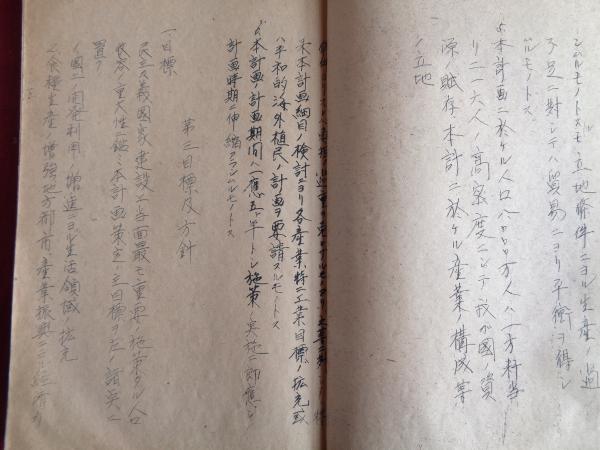 シムルモノトスルモ立地条件ニヨル生産ノ過
不足ニ対シテハ貿易ニヨリ平衡ヲ得シ
ムルモノトス
本計画ニ於ケル人口八〇〇〇万人ハ一方粁当
リ二一六人ノ高密度ニシテ我ガ国ノ資
源ノ賦存本計ニ於ケル産業ノ構成等
ノ立地
本計画細目ノ検討ニヨリ各産業特ニ工業目標ノ拡充或
ハ平和的海外植民ノ計画ヲ要請スルモノトス
本計画ノ計画期間ハ一應五ヶ年トシ施策ノ実施ニ即應シ
計画時期ニ伸縮アラシムルモノトス
第三目標及方針
一、目標
民主主義國家建設上当面最モ重要ノ施策タル人口
収容ノ重大性ニ鑑ミ本計画策定ノ主目標ヲ左ノ諸点ニ
置ク
國土開発利用ノ増進ニヨル生活領域ノ拡充
食糧生産ノ増強地方都市ノ産業振興ニヨル経済力